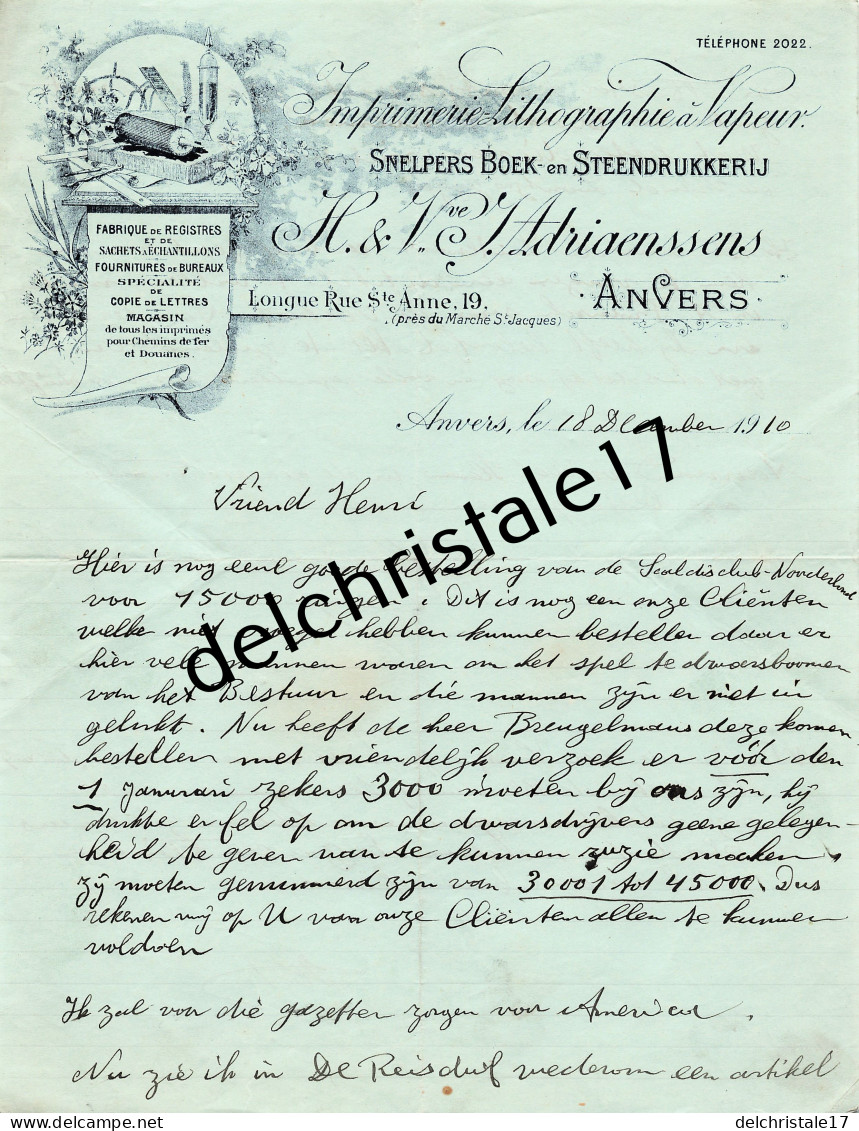 TÉLÉPHONE 2022.
Imprimerie-Lithographie à Vapeur.
SNELPERS BOEK- en STEENDRUKKERIJ
H. & Vve J. Adriaenssens
ANVERS
Longue Rue Ste Anne, 19.
(près du Marché St Jacques)
FABRIQUE DE REGISTRES
ET DE
SACHETS À ÉCHANTILLONS
FOURNITURES DE BUREAUX
SPÉCIALITÉ
DE
COPIE DE LETTRES
MAGASIN
de tous les imprimés
pour Chemins de fer
et Douanes.
Anvers, le 18 December 1910
Vriend Henri
Hier is nog eene goede bestelling van de Scaldisclub-Noorderbond
voor 15000 ringen. Dit is nog een onze Cliënten
welke niet hebben kunnen bestellen daar er
hier vele mannen waren om het spel te dwarsboomen
van het Bestuur en die mannen zijn er niet in
gelukt. Nu heeft de heer Breugelmans deze komen
bestellen met vriendelijk verzoek er vóór den
1 Januari zekers 3000 moeten bij ons zijn, hij
drukte er fel op om de dwarsdrijvers geene gelegen-
heid te geven van te kunnen ruzie maken,
zij moeten genummerd zijn van 30001 tot 45000. Dus
rekenen wij op U van onze Cliënten allen te kunnen
voldoen
Ik zal voor die gazetten zorgen voor America.
Nu zie ik in De Reisduif wederom een artikel
delchristale17
delcampe.net
delchristale17